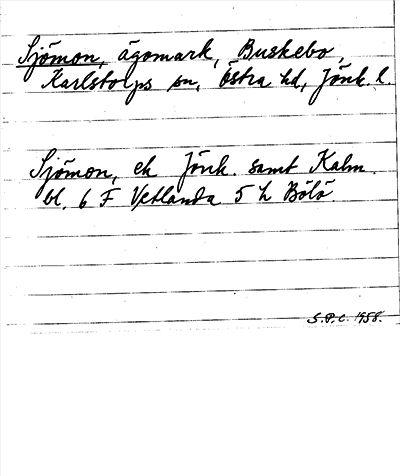 Sjömon, ägomark, Buskebo,
Karlstorps sn, Östra hd, Jönk. l.
Sjömon, ek Jönk. samt Kalm.
bl. 6 F Vetlanda 5 h Bölö
S.P.C. 1958.